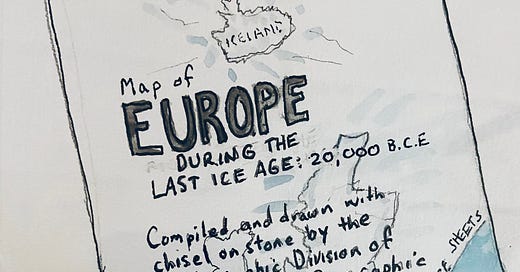 ICELAND
Map of
EUROPE
DURING THE
LAST ICE AGE: 20,000 B.C.E
Compiled and drawn with
chisel on stone by the
Division of
SHEETS